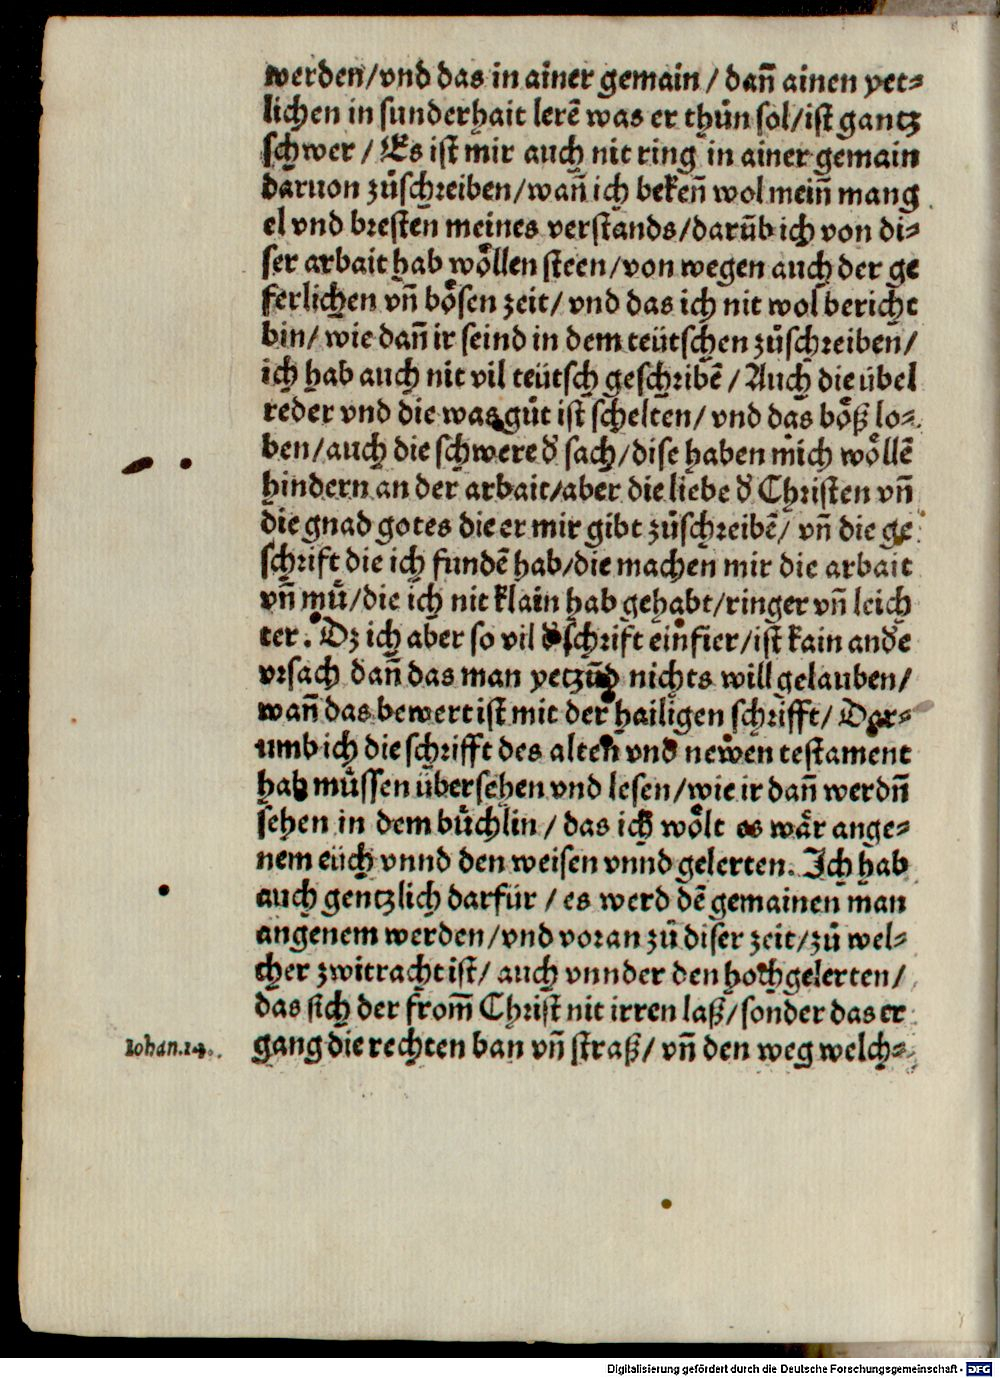 werden/vnd das in ainer gemain / dañ ainen yet⸗
lichen in sunderhait lerẽ was er thůn sol/ist gantz
schwer / Es ist mir auch nit ring in ainer gemain
daruon zůschreiben/wañ ich bekeñ wol meiñ mang
el vnd bresten meines verstands/darũb ich von di⸗
ser arbait hab wöllen steen/von wegen auch der ge
ferlichen vñ bösen zeit/ vnd das ich nit wol bericht
bin/ wie dañ ir seind in dem teütschen zůschreiben/
ich hab auch nit vil teütsch geschribẽ / Auch die übel
reder vnd die was gůt ist schelten/ vnd das böß lo⸗
ben/auch die schwere d' sach/dise haben mich wöllẽ
hindern an der arbait/aber die liebe d' Christen vñ
die gnad gotes die er mir gibt zůschreibẽ/ vñ die ge
schrift die ich fundẽ hab/die machen mir die arbait
vñ mů/die ich nit klain hab gehabt/ringer vñ leich
ter. Dz ich aber so vil d' schrift einfier/ist kain ande
vrsach dañ das man yetzũd nichts will gelauben/
wañ das bewert ist mit der hailigen schrifft/ Dar⸗
umb ich die schrifft des alten vnd newen testament
hab müssen übersehen vnd lesen/wie ir dañ werdñ
sehen in dem büchlin / das ich wölt es wär ange⸗
nem eüch vnnd den weisen vnnd gelerten. Ich hab
auch gentzlich darfür / es werd dẽ gemainen man
angenem werden/vnd voran zů diser zeit/zů wel⸗
cher zwitracht ist/ auch vnnder den hochgelerten/
das sich der from̃ Christ nit irren laß/sonder das er
Iohan.14. gang die rechten ban vñ straß/ vñ den weg welch⸗
Digitalisierung gefördert durch die Deutsche Forschungsgemeinschaft - DFG